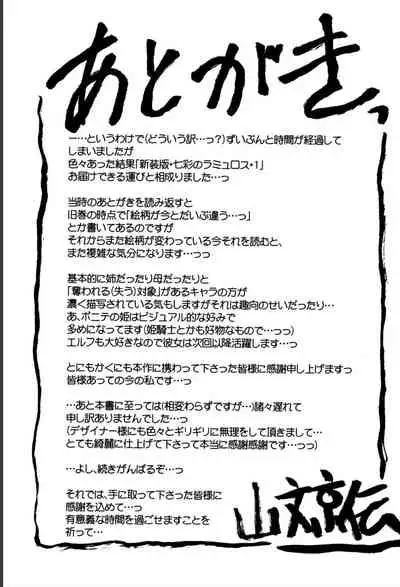 あとがきっ
ー…というわけで(どういう訳…っ?)ずいぶんと時間が経過して
しまいましたが
色々あった結果「新装版・七彩のラミュロス*1」
お届けできる運びと相成りました…っ
当時のあとがきを読み返すと
旧巻の時点で「絵柄が今とだいぶ違う…っ」
とか書いてあるのですが
それからまた絵柄が変わっている今それを読むと、
また複雑な気分になります…っっ
基本的に姉だったり母だったりと
「奪われる(失う)対象」があるキャラの方が
濃く描写されている気もしますがそれは趣向のせいだったり…
あ、ポニテの姫はビジュアル的な好みで
多めになってます(姫騎士とかも好物なもので…っっ)
エルフも大好きなので彼女は次回以降活躍します…っ
とにもかくにも本作に携わって下さった皆様に感謝申し上げますっ
皆様あっての今の私です…っ
…あと本書に至っては(相変わらずですが…)諸々遅れて
申し訳ありませんでした…っ
(デザイナー様にも色々とギリギリに無理をして頂きまして…
とても綺麗に仕上げて下さって本当に感謝感謝です…っっ)
…よし、続きがんばるぞ…っ
それでは、手に取って下さった皆様に
感謝を込めて…っ
有意義な時間を過ごせますことを
祈って…
山文京伝